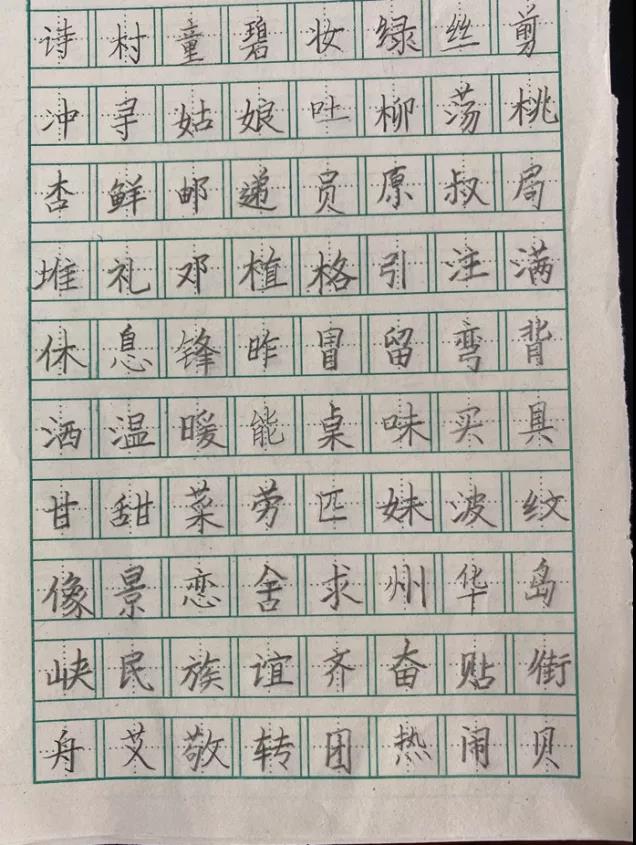 诗村童碧妆绿丝剪
冲寻姑娘吐柳荡桃
杏鲜邮递员原叔局
堆礼邓植格引注满
休息锋昨冒留弯背
洒温暖能桌味买具
甘甜菜劳匹妹波纹
像景恋舍求州华岛
峡民族谊齐奋贴街
舟艾敬转团热闹贝